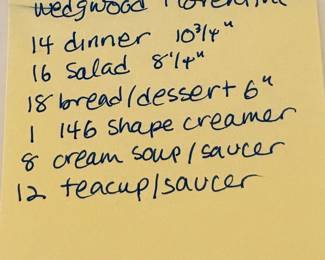 Wedgwood Florentine
14 dinner 10 3/4"
16 salad 8 1/4"
18 bread/dessert 6"
1 146 shape creamer
8 cream soup/saucer
12 teacup/saucer